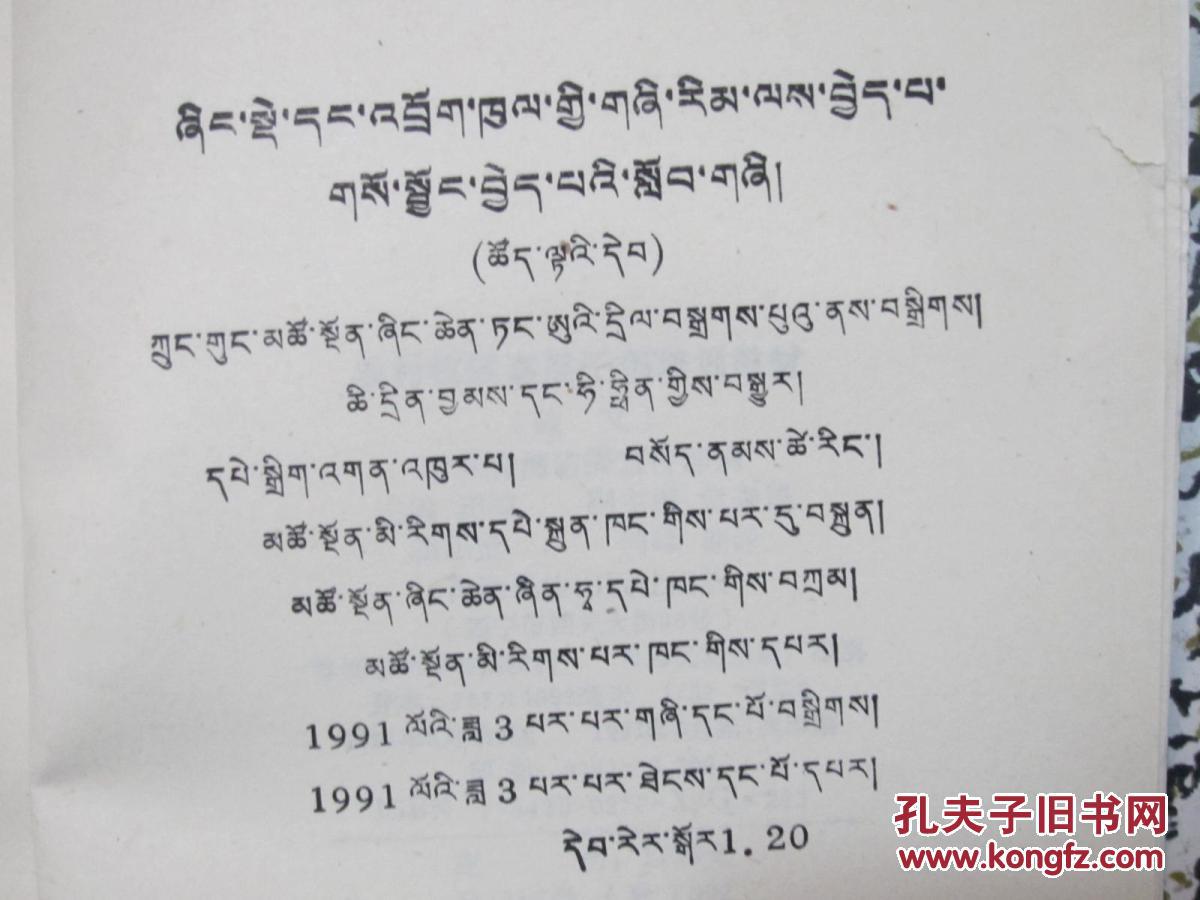 ཞིང་སྡེ་དང་འབྲོག་ཁུལ་གྱི་གཞི་རིམ་ལས་བྱེད་པ་
གསོ་སྦྱོང་བྱེད་པའི་སློབ་གཞི།
(ཚོད་ལྟའི་དེབ)
ཀྲུང་གུང་མཚོ་སྔོན་ཞིང་ཆེན་ཏང་ཨུའི་དྲིལ་བསྒྲགས་པུའུ་ནས་བསྒྲིགས།
ཚེ་དྲིན་བྱམས་དང་ཧེ་ཧྥིན་གྱིས་བསྒྱུར།
དཔེ་སྒྲིག་འགན་འཁུར་པ། བསོད་ནམས་ཚེ་རིང་།
མཚོ་སྔོན་མི་རིགས་དཔེ་སྐྲུན་ཁང་གིས་པར་དུ་བསྐྲུན།
མཚོ་སྔོན་ཞིང་ཆེན་ཞིན་ཧྭ་དཔེ་ཁང་གིས་བཀྲམ།
མཚོ་སྔོན་མི་རིགས་པར་ཁང་གིས་དཔར།
1991 ལོའི་ཟླ 3 པར་པར་གཞི་དང་པོ་བསྒྲིགས།
1991 ལོའི་ཟླ 3 པར་པར་ཐེངས་དང་པོ་དཔར།
དེབ་རེར་སྒོར 1.20
孔夫子旧书网
www.kongfz.com